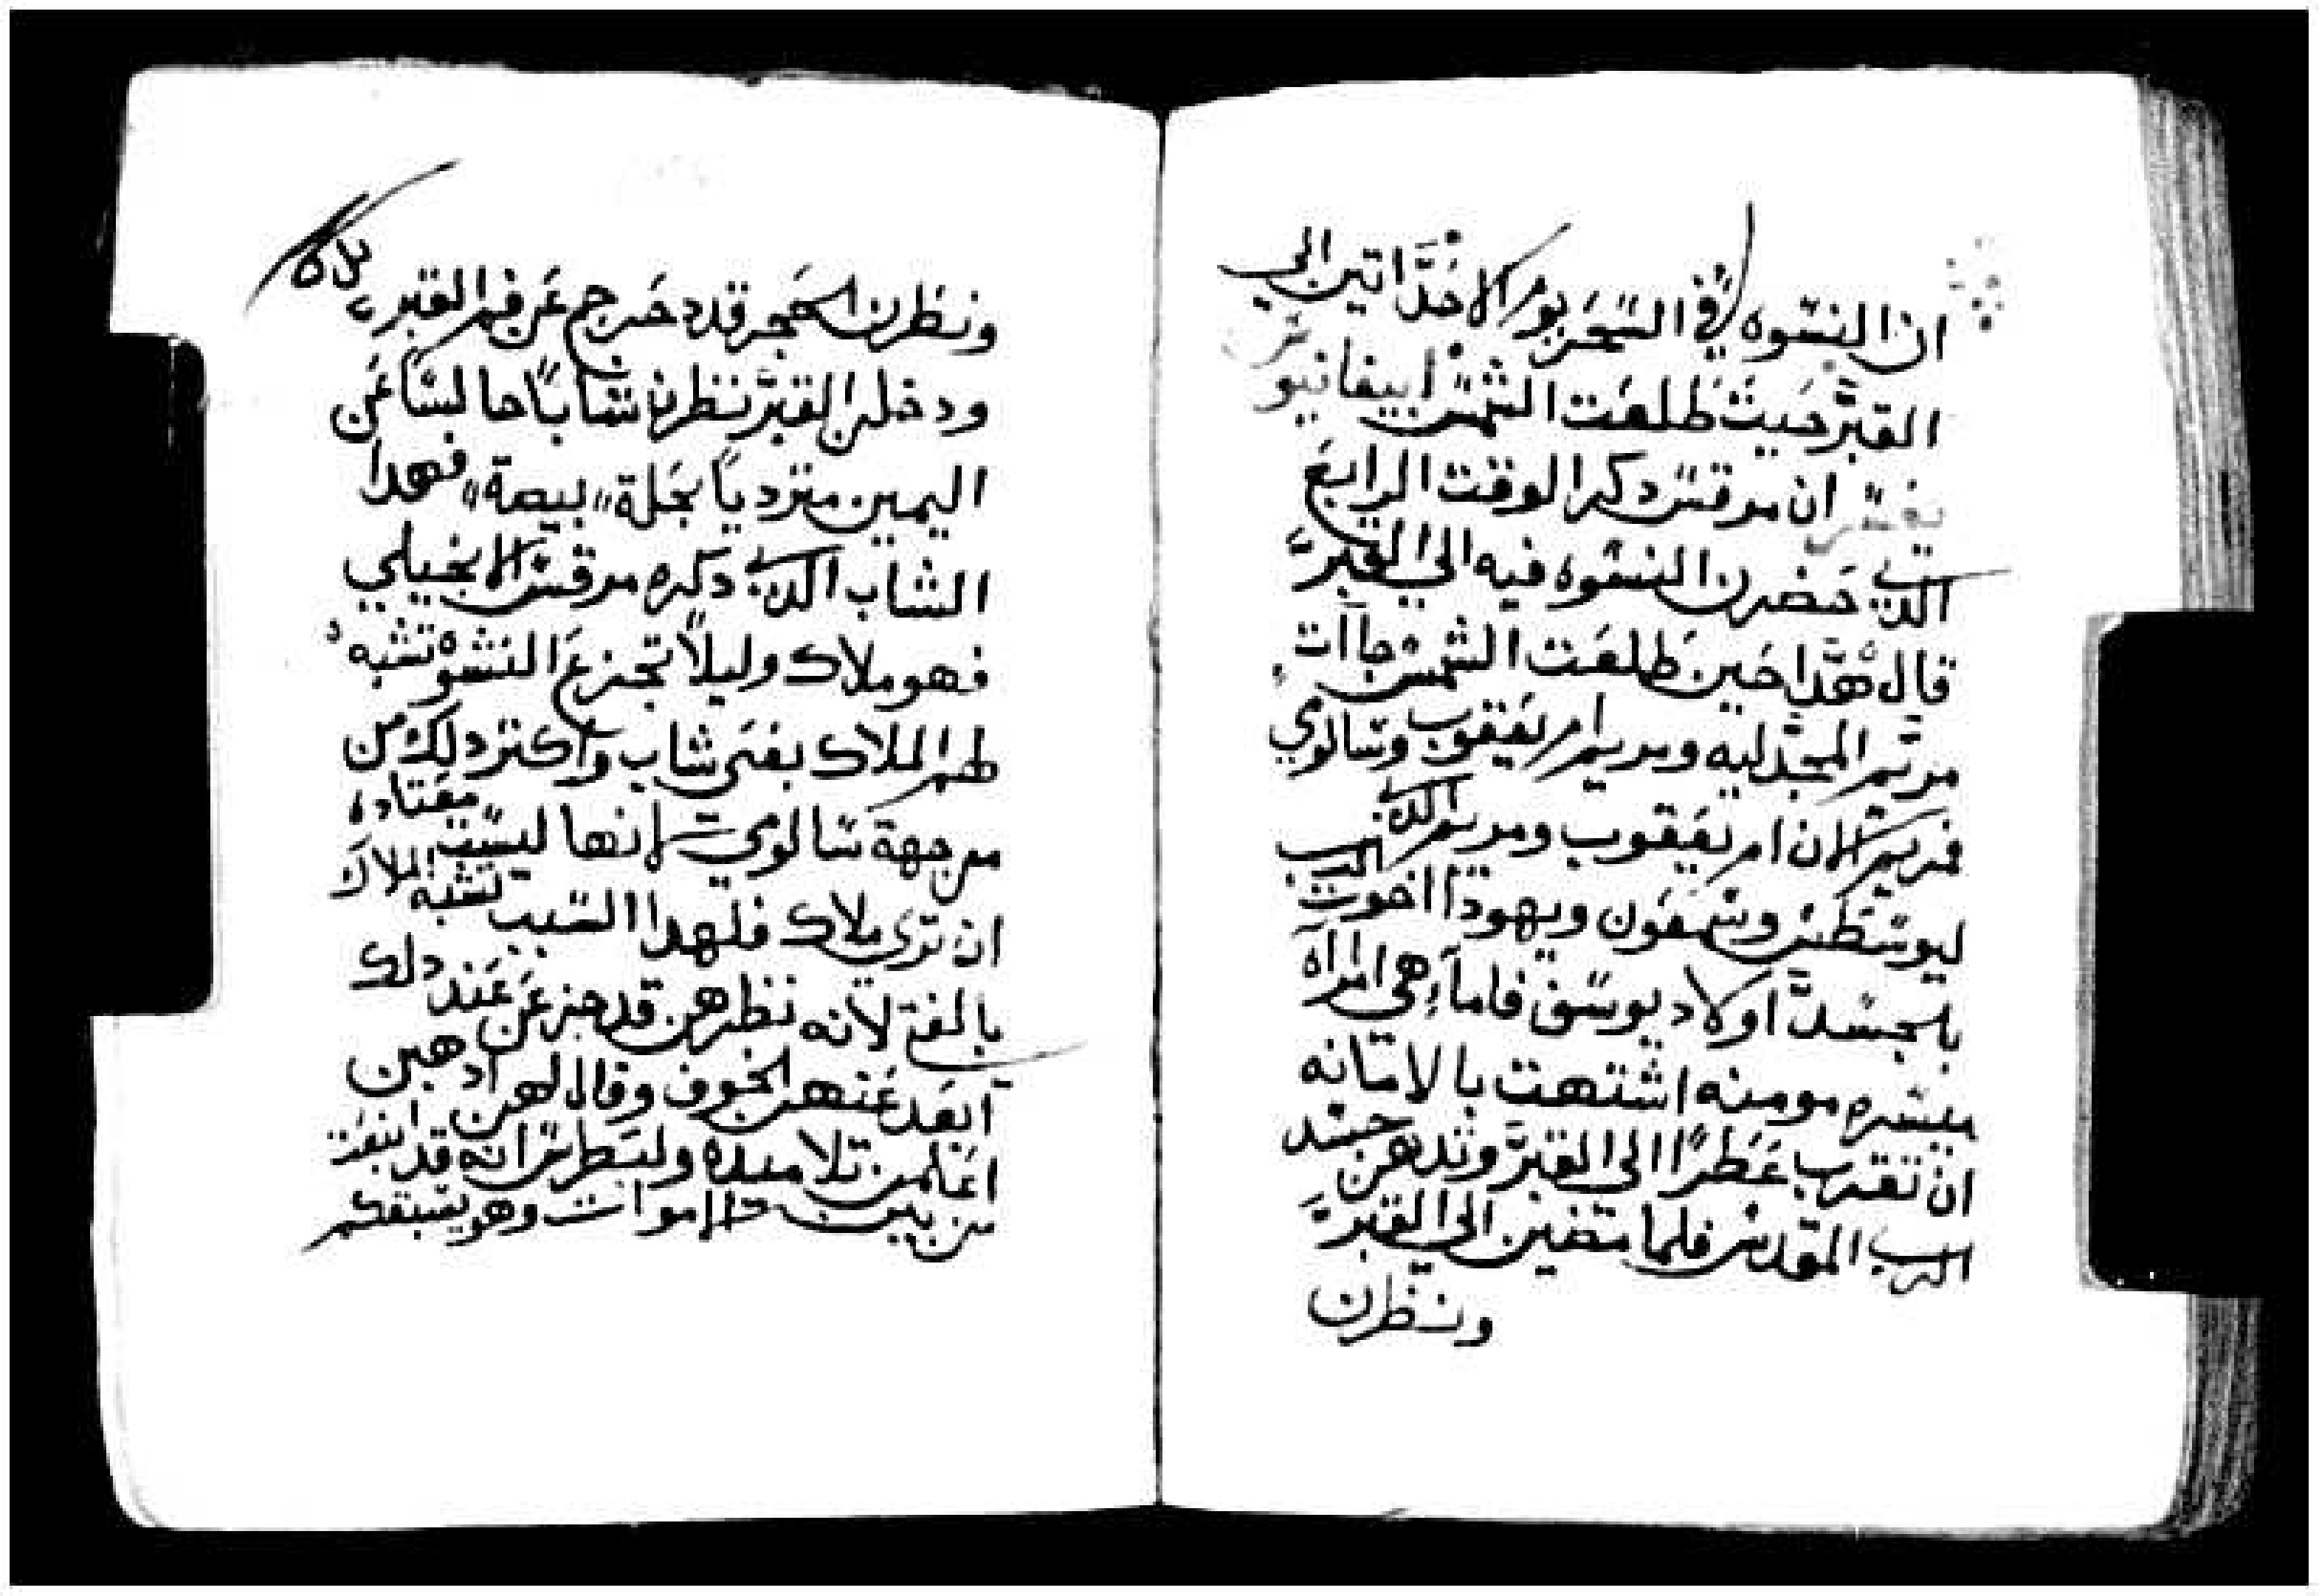 ان النسوه في السحر يوم الاحد اتين الي
القبر حيث طلعت الشمس ابيفانيوس
يفسر ان مرقس دكر الوقت الرابع
الدي حضرن النسوه فيه الي القبر
قال هدا حين طلعت الشمس جاات
مريم المجدليه ومريم ام يعقوب وسالومي
فمريم الان ام يعقوب ومريم الدي
ليوسطس وشمعون ويهودا اخوت الرب
بالجسد اولاد يوسف فاما هي امراه
ميسره مومنه اشتهت بالامانه
ان تقرب عطرا الي القبر وتدهن جسد
الرب المقدس فلما مضين الي القبر
ونظرن
ونظرن الحجر قد دحرج عن فم القبر
ودخلن القبر نظرن شابا جالسا عن
اليمين متردیا بحلة بيضة فهدا
الشاب الدي دكره مرقس الانجيلي
فهو ملاك وليلا تجزع النسوه تشبه
لهم الملاك بفتي شاب واكتر دلك من
من جهة سالومي لانها ليست معتاده
ان تري ملاك فلهدا السبب تشبه الملاك
بالفتي لانه نظرهن قد جزعن عند دلك
ابعد عنهن الخوف وقال لهن ادهبن
اعلمن تلاميده ولبطرس انه قد انبعت
من بين الاموات وهو يسبقكم